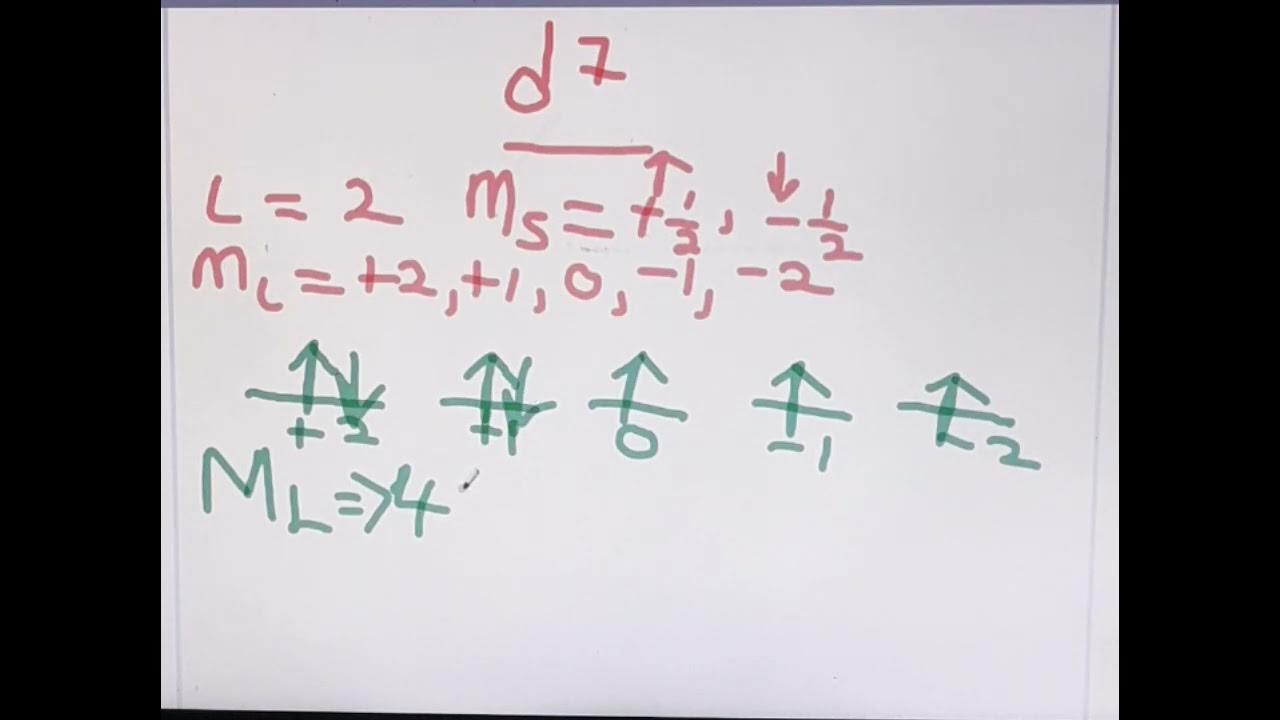 d⁷
L = 2 mₛ = +½, -½
m_L = +2, +1, 0, -1, -2
+2 +1 0 -1 -2
M_L => 4